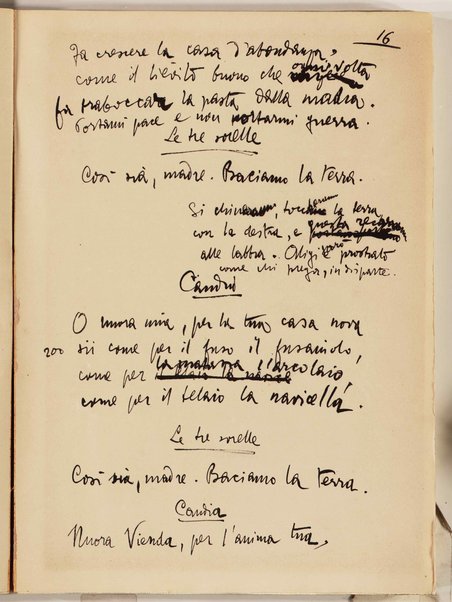 16
Fa crescere la casa d'abondanza,
come il lievito buono che ogni volta
fa traboccar la pasta dalla madra.
Portami pace e non portarmi guerra.
Le tre sorelle
Così sia, madre. Baciamo la terra.
Si chinarono, toccarono la terra
con la destra, e questa recarono
alle labbra. Aligi è prostrato
come chi prega, in disparte.
Candia
O nuora mia, per la tua casa nova
200 sii come per il fuso il fusaiolo,
come per la matassa l'arcolaio,
come per il telaio la navicella!
Le tre sorelle
Così sia, madre. Baciamo la terra.
Candia
Nuora Vienda, per l'anima tua,